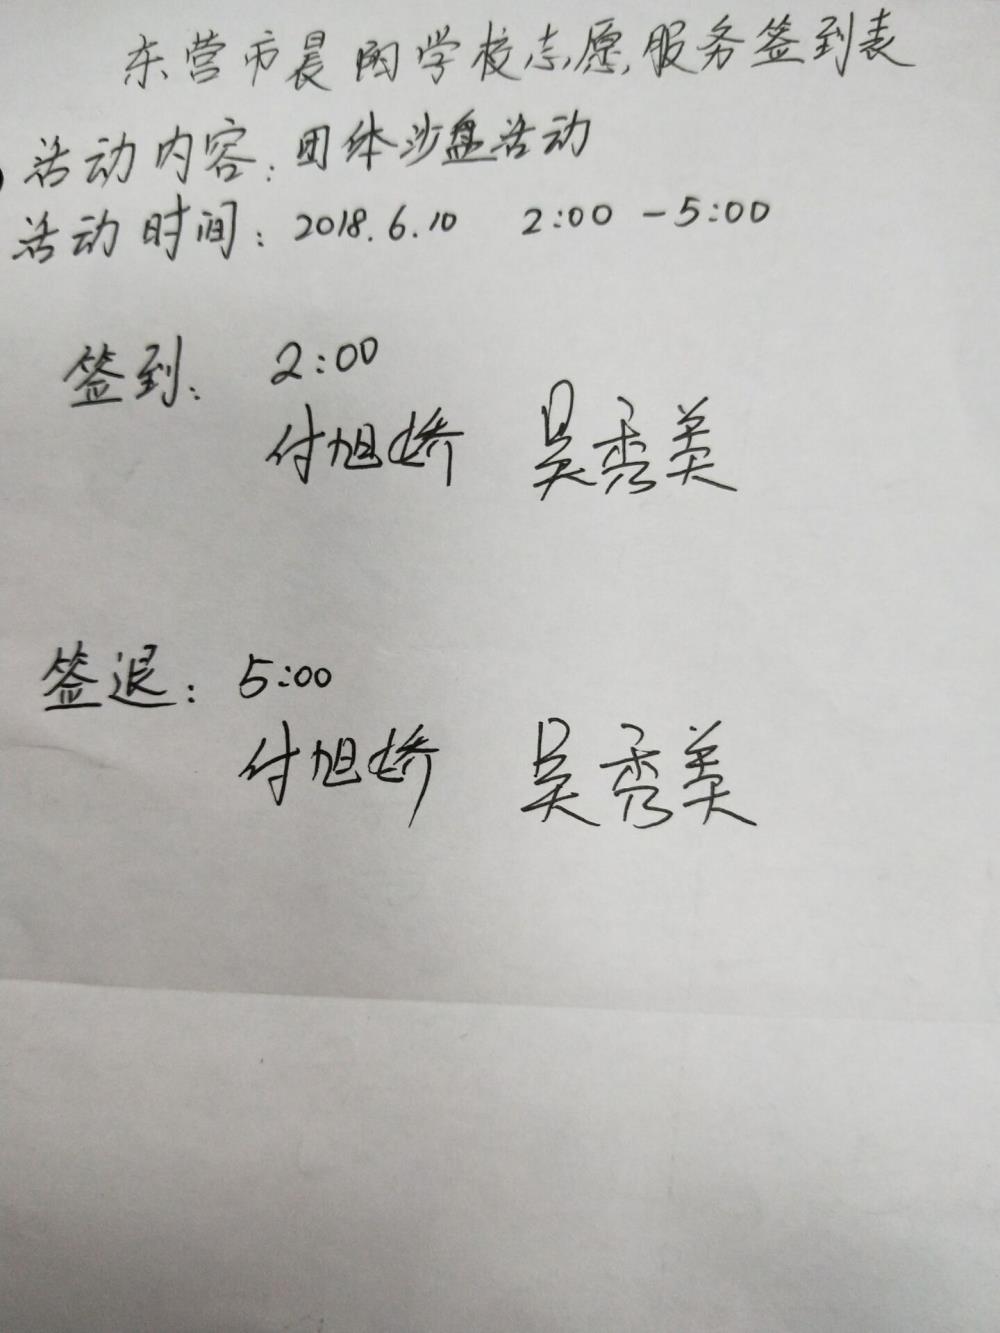 东营市晨阳学校志愿服务签到表
活动内容：团体沙盘活动
活动时间：2018.6.10 2:00-5:00
签到：2:00
付旭娇 吴秀美
签退：5:00
付旭娇 吴秀美